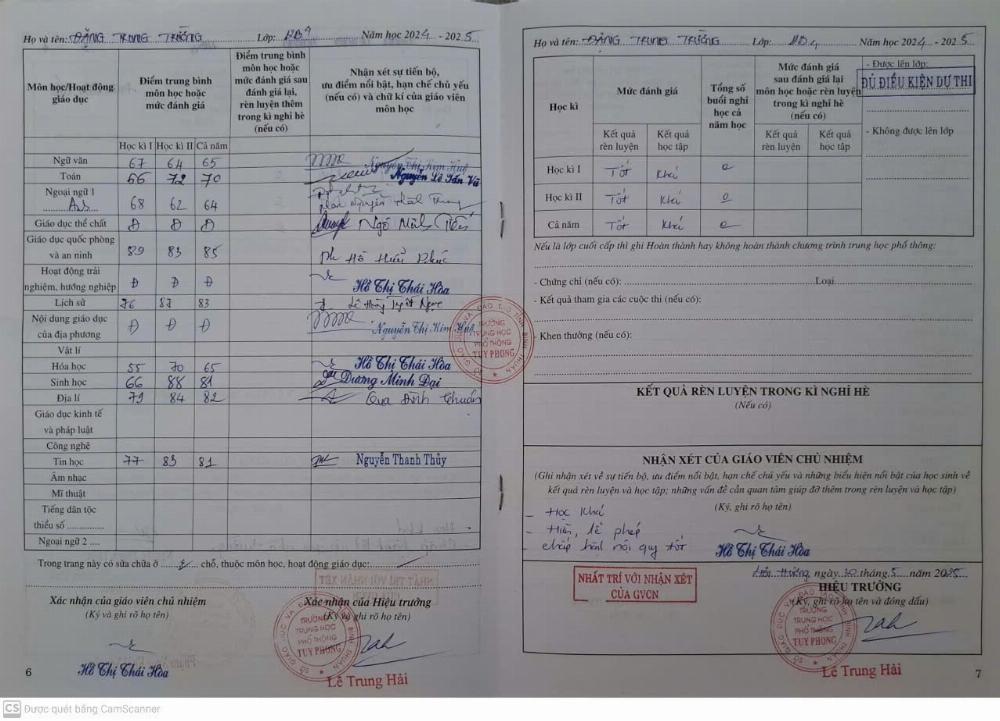 Họ và tên: ĐẶNG TRUNG TRƯỜNG Lớp: Năm học 2024 - 2025
Môn học/Hoạt động giáo dục
Điểm trung bình môn học hoặc mức đánh giá
Điểm trung bình môn học hoặc mức đánh giá sau đánh giá lại, rèn luyện thêm trong kì nghỉ hè (nếu có)
Nhận xét sự tiến bộ, ưu điểm nổi bật, hạn chế chủ yếu (nếu có) và chữ kí của giáo viên môn học
Học kì I Học kì II Cả năm
Ngữ văn 67 64 65 Nguyễn Thị Kim Huệ
Toán 66 72 70 Nguyễn Lê Tấn Vũ
Ngoại ngữ 1
Anh 68 62 64
Giáo dục thể chất Đ Đ Đ Ngô Minh
Giáo dục quốc phòng và an ninh 89 83 85 Hồ Hiếu
Hoạt động trải nghiệm, hướng nghiệp Đ Đ Đ Hồ Thị Thái Hòa
Lịch sử 76 87 83
Nội dung giáo dục của địa phương Đ Đ Đ Nguyễn Thị Kim Huệ
Vật lí
Hóa học 55 70 65 Hồ Thị Thái Hòa
Sinh học 66 88 81 Dương Minh Đại
Địa lí 79 84 82 Đình Thuấn
Giáo dục kinh tế và pháp luật
Công nghệ
Tin học 77 83 81 Nguyễn Thanh Thủy
Âm nhạc
Mĩ thuật
Tiếng dân tộc thiểu số ............
Ngoại ngữ 2 ....
Trong trang này có sửa chữa ở ........ chỗ, thuộc môn học, hoạt động giáo dục:
Xác nhận của giáo viên chủ nhiệm
(Ký và ghi rõ họ tên)
Hồ Thị Thái Hòa
Xác nhận của Hiệu trưởng
(Ký và ghi rõ họ tên)
SỞ GIÁO DỤC VÀ ĐÀO TẠO TỈNH BÌNH THUẬN
TRƯỜNG
TRUNG HỌC
PHỔ THÔNG
TUY PHONG
Lê Trung Hải
6
Họ và tên: ĐẶNG TRUNG TRƯỜNG Lớp: Năm học 2024 - 2025
Học kì
Mức đánh giá
Kết quả rèn luyện
Kết quả học tập
Tổng số buổi nghỉ học cả năm học
Mức đánh giá sau đánh giá lại môn học hoặc rèn luyện trong kì nghỉ hè (nếu có)
Kết quả rèn luyện
Kết quả học tập
- Được lên lớp:
ĐỦ ĐIỀU KIỆN DỰ THI
- Không được lên lớp
Học kì I Tốt Khá 0
Học kì II Tốt Khá 0
Cả năm Tốt Khá 0
Nếu là lớp cuối cấp thì ghi Hoàn thành hay không hoàn thành chương trình trung học phổ thông:
- Chứng chỉ (nếu có): Loại
- Kết quả tham gia các cuộc thi (nếu có):
- Khen thưởng (nếu có):
SỞ GIÁO DỤC VÀ ĐÀO TẠO TỈNH BÌNH THUẬN
TRƯỜNG
TRUNG HỌC
PHỔ THÔNG
TUY PHONG
KẾT QUẢ RÈN LUYỆN TRONG KÌ NGHỈ HÈ
(Nếu có)
NHẬN XÉT CỦA GIÁO VIÊN CHỦ NHIỆM
(Ghi nhận xét về sự tiến bộ, ưu điểm nổi bật, hạn chế chủ yếu và những biểu hiện nổi bật của học sinh về
kết quả rèn luyện và học tập; những vấn đề cần quan tâm giúp đỡ thêm trong rèn luyện và học tập)
(Ký, ghi rõ họ tên)
- Học Khá
- Hiền, lễ phép
- chấp hành nội quy tốt
Hồ Thị Thái Hòa
NHẤT TRÍ VỚI NHẬN XÉT
CỦA GVCN
ngày 20 tháng 5 năm 2025
HIỆU TRƯỞNG
(Ký, ghi rõ họ tên và đóng dấu)
SỞ GIÁO DỤC VÀ ĐÀO TẠO TỈNH BÌNH THUẬN
TRƯỜNG
TRUNG HỌC
PHỔ THÔNG
TUY PHONG
Lê Trung Hải
7
CS Được quét bằng CamScanner